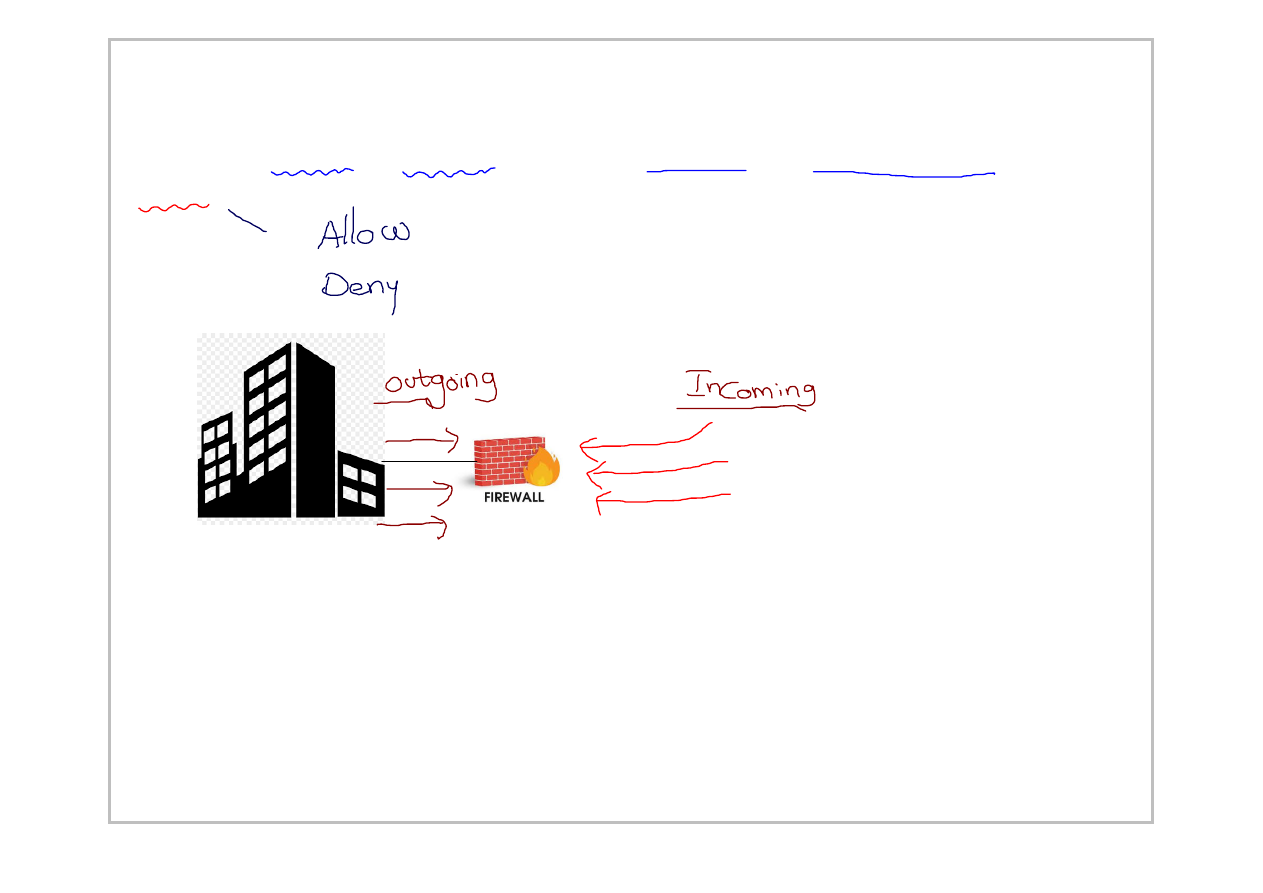 Allow
Deny
outgoing
Incoming
FIREWALL